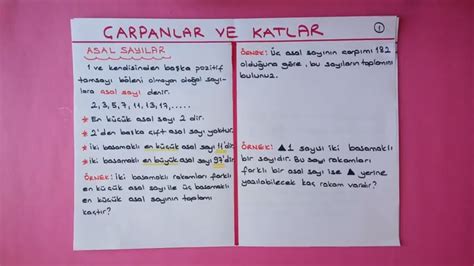 ÇARPANLAR VE KATLAR
1
ASAL SAYILAR
1 ve kendisinden başka pozitif
tamsayı böleni olmayan doğal sayı-
lara asal sayı denir.
2, 3, 5, 7, 11, 13, 17, .....
* En küçük asal sayı 2 dir.
* 2'den başka çift asal sayı yoktur.
* İki basamaklı en küçük asal sayı 11'dir.
* İki basamaklı en büyük asal sayı 97'dir.
ÖRNEK: İki basamaklı rakamları farklı
en küçük asal sayı ile üç basamaklı
en küçük asal sayının toplamı
kaçtır?
ÖRNEK: Üç asal sayının çarpımı 182
olduğuna göre, bu sayıların toplamını
bulunuz.
ÖRNEK: ▲1 sayısı iki basamaklı
bir sayıdır. Bu sayı rakamları
farklı bir asal sayı ise ▲ yerine
yazılabilecek kaç rakam vardır?